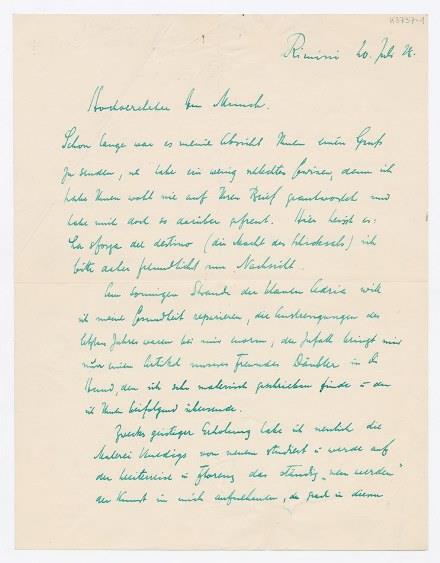 K3737-1
Rimini 20. Juli 26.
Hochverehrter Herr Munch.
Schon lange war es meine Absicht Ihnen einen Gruß
zu senden, ich habe ein wenig schlechtes Gewissen, denn ich
habe Ihnen wohl nie auf Ihren Brief geantwortet und
habe mich doch so darüber gefreut. Hier heisst es:
La sforza del destino (die Macht des Schicksals) ich
bitte daher freundlichst um Nachsicht.
Am sonnigen Strande der blauen Adria will
ich meine Gesundheit reparieren, die Anstrengungen des
letzten Jahres waren bei mir enorm, der Zufall bringt mir
nun einen Artikel unseres Freundes Däubler in die
Hand, den ich sehr malerisch geschrieben finde u den
ich Ihnen beifolgend übersende.
Zwecks geistiger Erholung habe ich neulich die
Malerei Venedigs von neuem studiert u werde auf
der Weiterreise in Florenz das ständig „neu werden"
der Kunst in mich aufnehmen, da grad in diesem